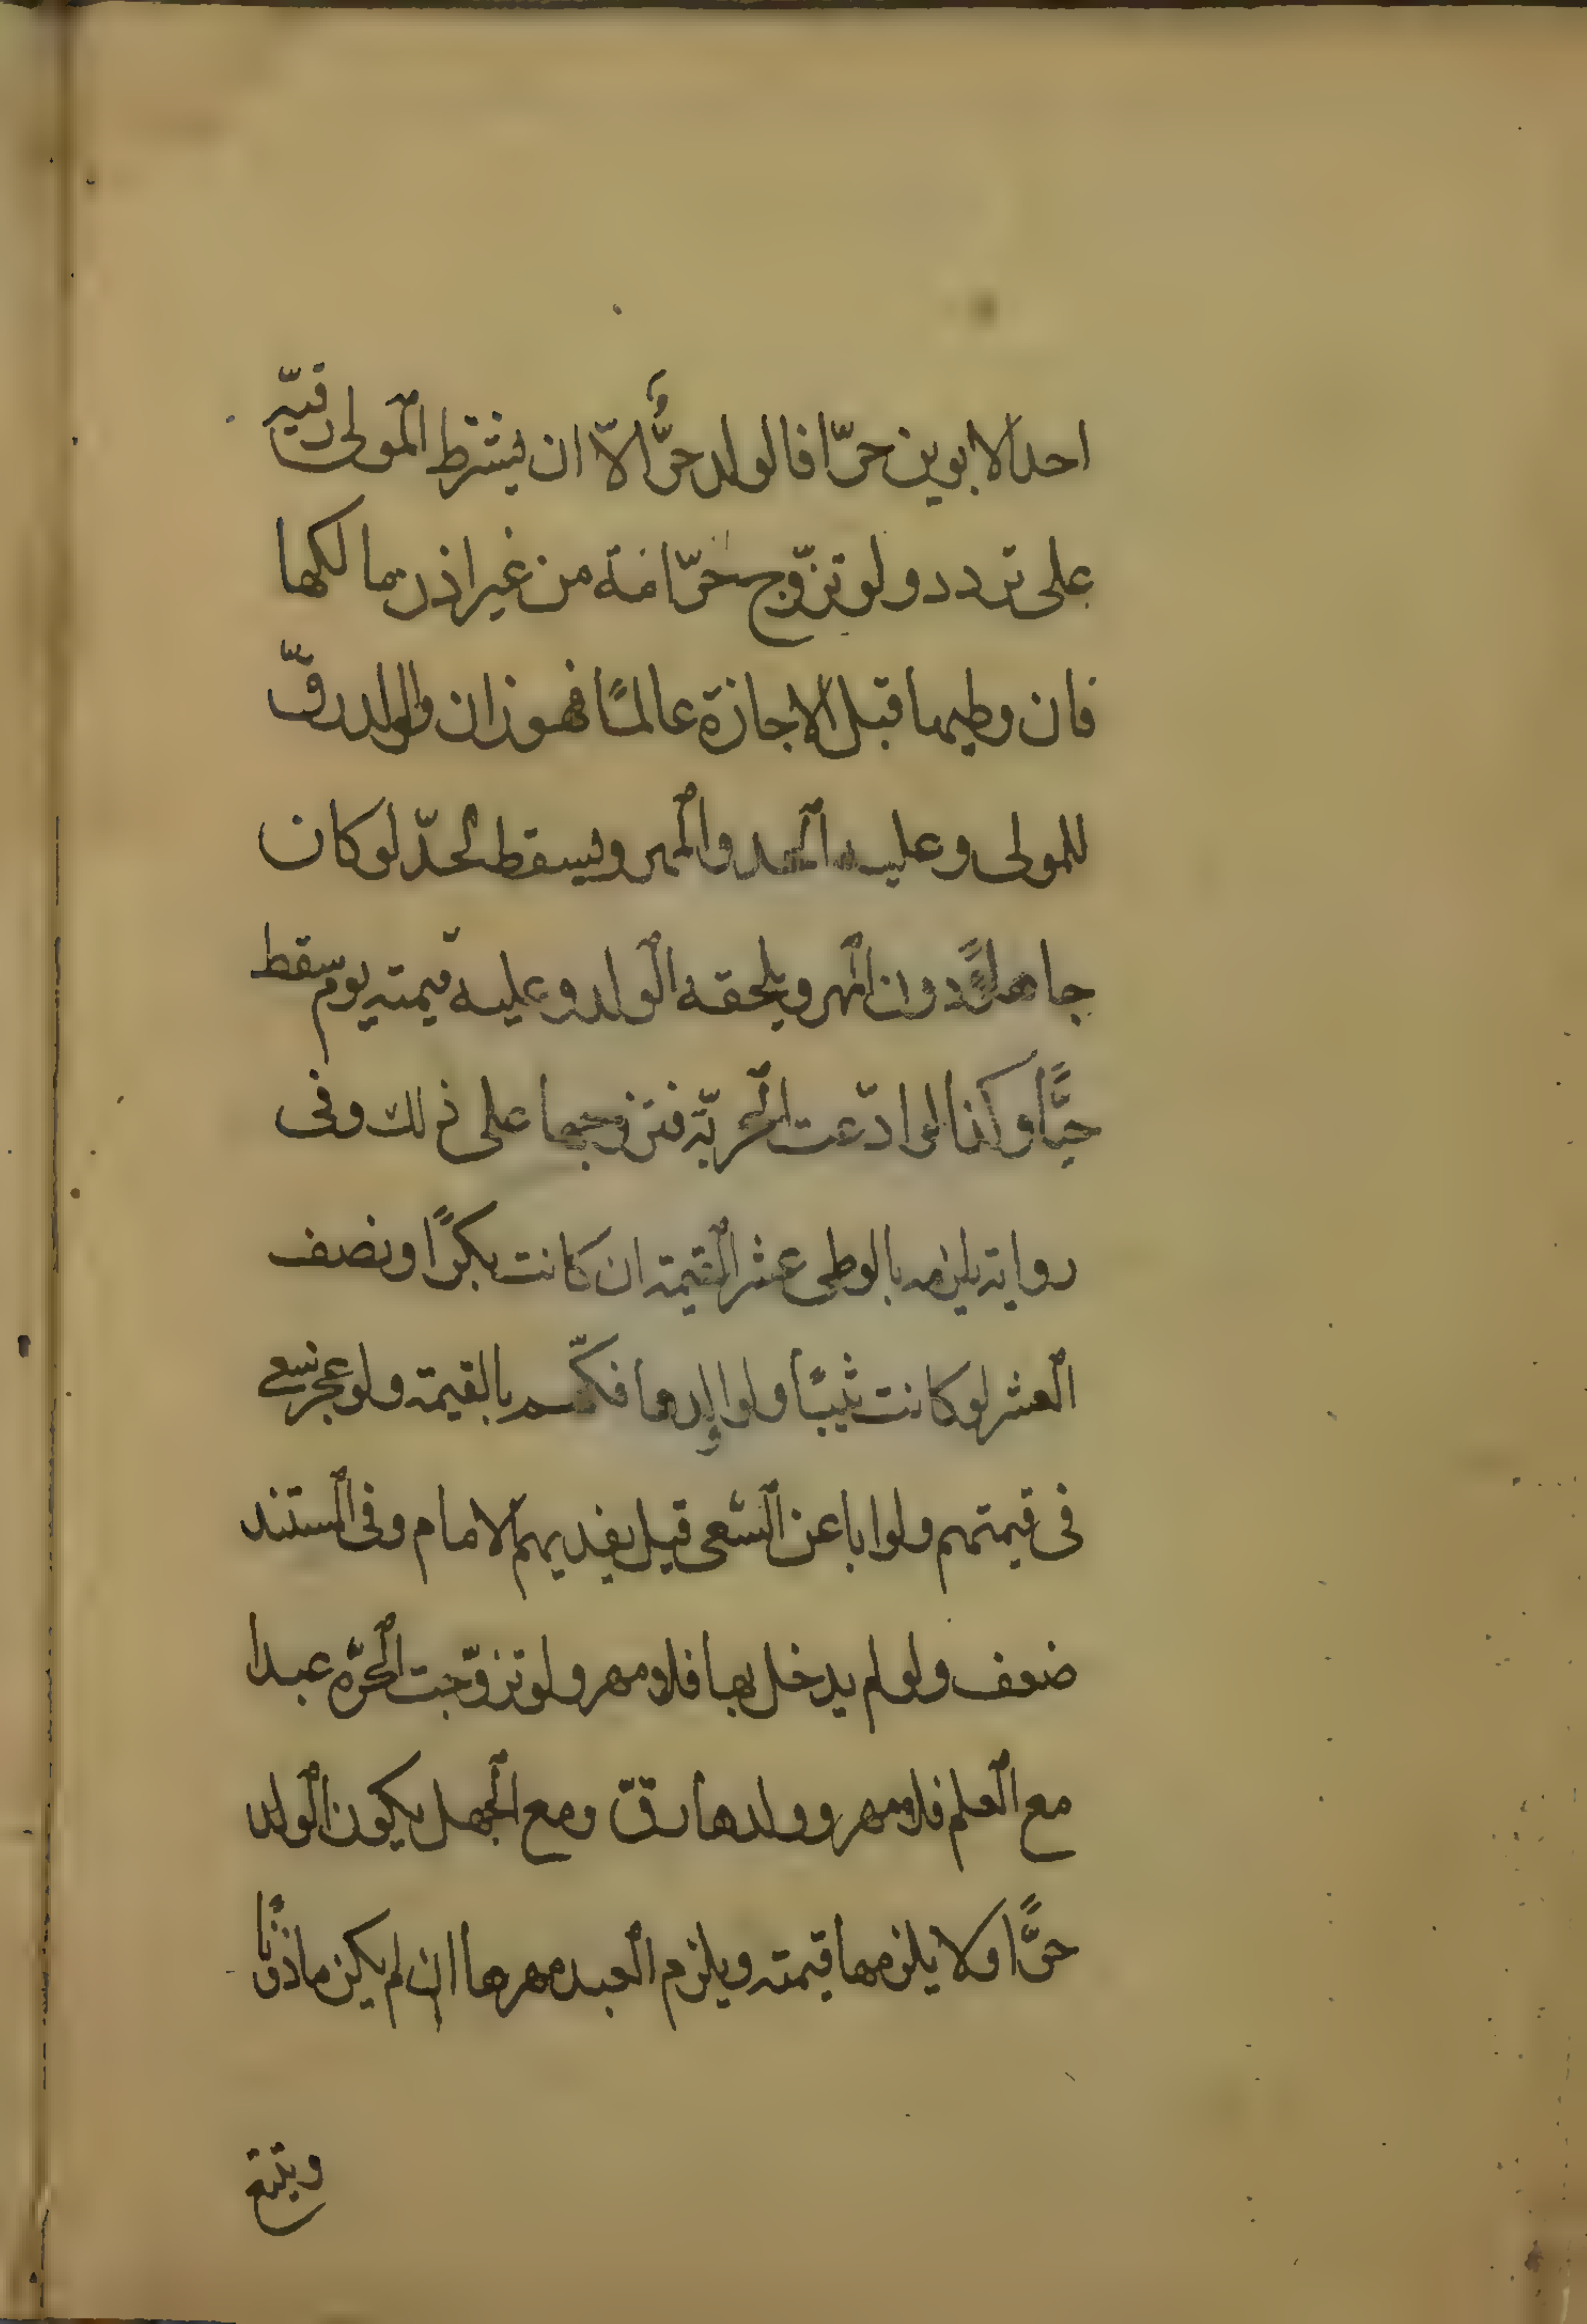 احد الابوين حرّا فالولد حرٌّ الاّ ان يشترط المولى رقيّه
على تردد ولو تزوّج حرّ امة من غير اذن مالكها
فان وطيها قبل الاجازة عالمًا فهو زان والولد رقّ
للمولى وعليه الحد والمهر ويسقط الحدّ لو كان
جاهلاً دون المهر ويلحقه الولد وعليه قيمته يوم سقط
حيًّا وكذا لو ادّعت الحريّة فتزوجها على ذلك وفى
رواية يلزمه بالوطى عشر القيمة ان كانت بكرًا ونصف
العشر لو كانت ثيبًا ولو اولدها فكّهم بالقيمة ولو عجز سعى
فى قيمتهم ولو ابا عن السّعى قيل يفديهم الامام وفى المستند
ضعف ولو لم يدخل بها فلا مهر ولو تزوّجت الحرّه عبدا
مع العلم فلا مهر وولدها رقّ ومع الجهل يكون الولد
حرًّا ولا يلزمها قيمته ويلزم العبد مهرها ان لم يكن ماذونًا
ويتبع